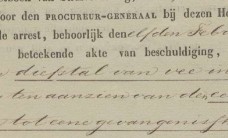 oor den PROCUREUR-GENERAAL bij dezen Ho
de arrest, behoorlijk den elfden Feb
beteekende akte van beschuldiging,
diefstal van vee in
ten aanzien van den
tot eene gevangenisst